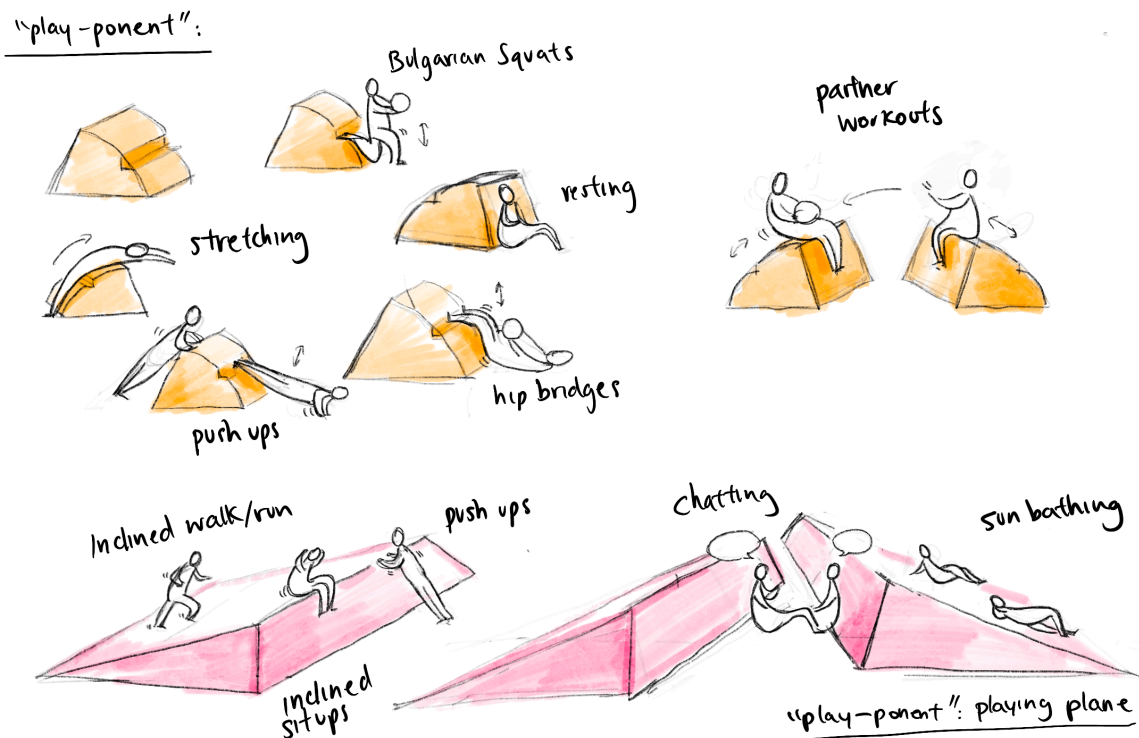 "play-ponent":
Bulgarian Squats
partner
workouts
resting
stretching
hip bridges
push ups
Inclined walk/run
push ups
chatting
sun bathing
inclined
situps
"play-ponent": playing plane